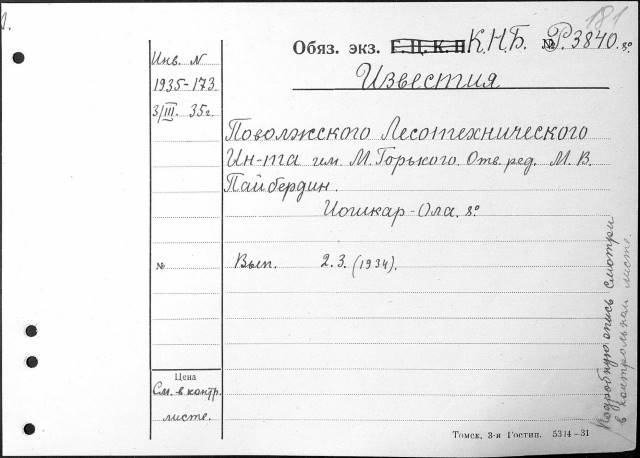 181
Обяз. экз. Г. Ц. К. П К.Н.Б. № Р. 3840. 8°
Известия
Инв. N
1935-173
3/III. 35г.
Поволжского Лесотехнического
Ин-та им. М. Горького. Отв. ред. М. В.
Пайбердин.
Иошкар-Ола. 8°
№ Вып. 2. 3. (1934).
Цена
См. в контр.
листе.
Подробную опись смотри
в контрольном листе.
Томск, 3-я Гостип. 5314-31